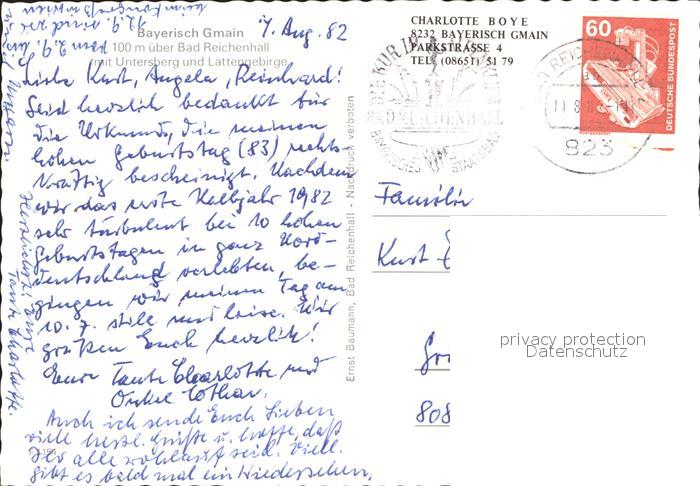 Bayerisch Gmain
100 m über Bad Reichenhall
mit Untersberg und Lattengebirge
7. Aug. 82
Liebe Kurt, Angela, Reinhard!
Seid herzlich bedankt für
die Urkunde, die meinen
hohen Geburtstag (83) rechts-
kräftig bescheinigt. Nachdem
wir das erste Halbjahr 1982
sehr turbulent bei 10 hohen
Geburtstagen in ganz Nord-
deutschland verlebten, be-
gingen wir meinen Tag am
10. 7. still und leise. Wir
grüßen Euch herzlich!
Eure Tante Charlotte und
Onkel Lothar.
Auch ich sende Euch Lieben
viele herzl. Grüße u. hoffe, daß
Ihr alle wohlauf seid. Viell.
gibt es bald mal ein Wiedersehen.
Herzlichst Eure
Tante Charlotte.
Ernst Baumann, Bad Reichenhall - Nachdruck verboten
CHARLOTTE BOYE
8232 BAYERISCH GMAIN
PARKSTRASSE 4
TEL. (08651) 51 79
DIE KUR IN
BAD REICHENHALL
BAYERISCHES STAATSBAD
BAD REICHENHALL
823
60
DEUTSCHE BUNDESPOST
Familie
Kurt
808
privacy protection
Datenschutz